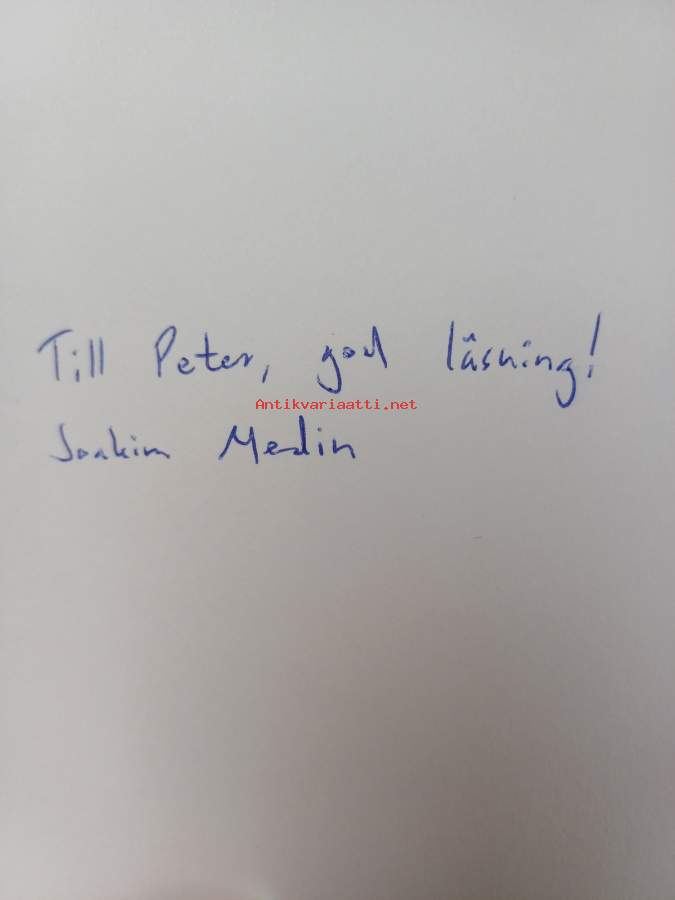 Till Peter, god läsning!
Antikvariaatti.net
Joakim Medin